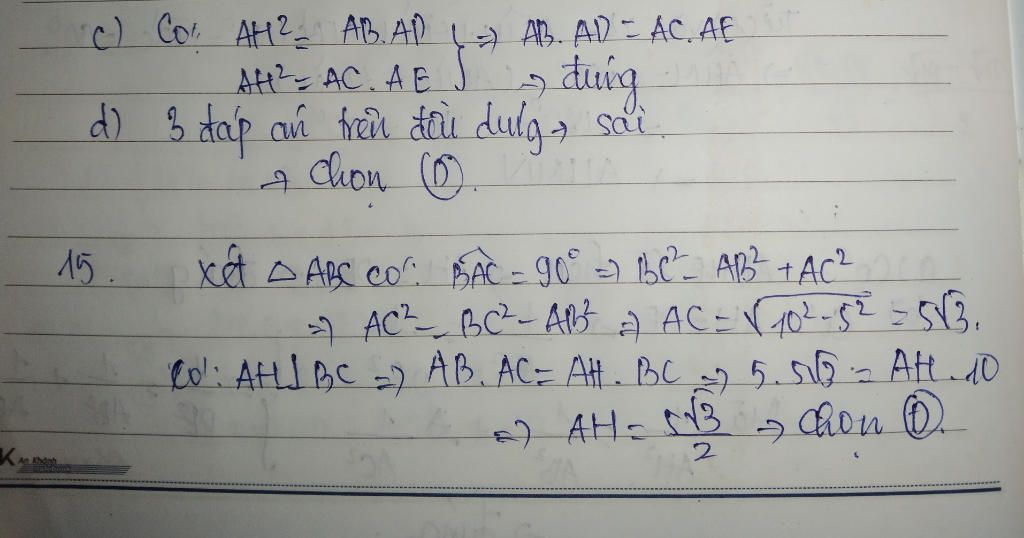 c) Có: AH² = AB.AD } ⇒ AB.AD = AC.AE
AH² = AC.AE → đúng
d) 3 đáp án trên đều đúng → sai.
→ Chọn Ⓓ.
15. Xét △ABC có: BAC = 90° ⇒ BC² = AB² + AC²
⇒ AC² = BC² - AB² ⇒ AC = √10² - 5² = 5√3.
Có: AH⊥BC ⇒ AB.AC = AH.BC ⇒ 5.5√3 = AH.10
⇒ AH = 5√3/2 → Chọn Ⓓ.
K An Khánh